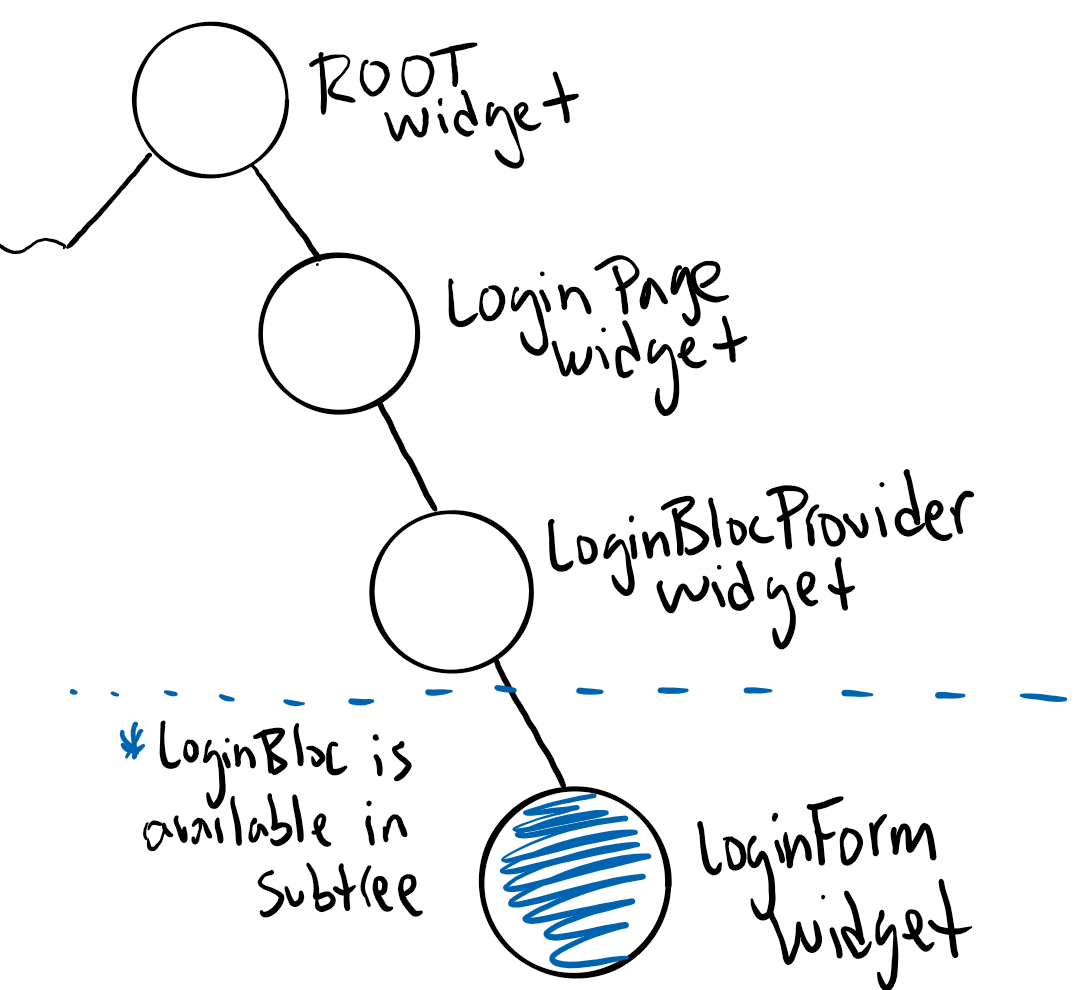 ROOT
widget
Login Page
widget
LoginBlocProvider
widget
* LoginBloc is
available in
subtree
LoginForm
widget